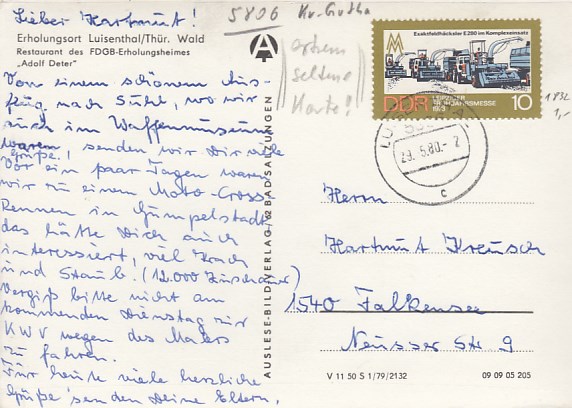 Lieber Hartmut!
5806 Kr. Gotha
Erholungsort Luisenthal/Thür. Wald
Restaurant des FDGB-Erholungsheimes
„Adolf Deter"
extrem
seltene
Karte!
Von einem schönen Aus-
flug nach Suhl, wo wir
auch im Waffenmuseum
waren, senden wir Dir viele
Grüße!
Vor ein paar Tagen waren
wir zu einem Moto-Cross-
Rennen in Gumpelstadt
das hätte Dich auch
interessiert, viel Krach
und Staub. (12.000 Zuschauer)
Vergiß bitte nicht am
kommenden Dienstag zur
KWV wegen des Malers
zu fahren.
Für heute viele herzliche
Grüße senden Deine Eltern.
AUSLESE-BILD-VERLAG/62 BAD SALZUNGEN
Exaktfeldhäcksler E280 im Komplexeinsatz
DDR
LEIPZIGER
FRÜHJAHRSMESSE
10
1832
1,-
23.5.80.-2
c
Herrn
Hartmut Kreusch
1540 Falkensee
Neusser Str 9
V 11 50 S 1/79/2132
09 09 05 205